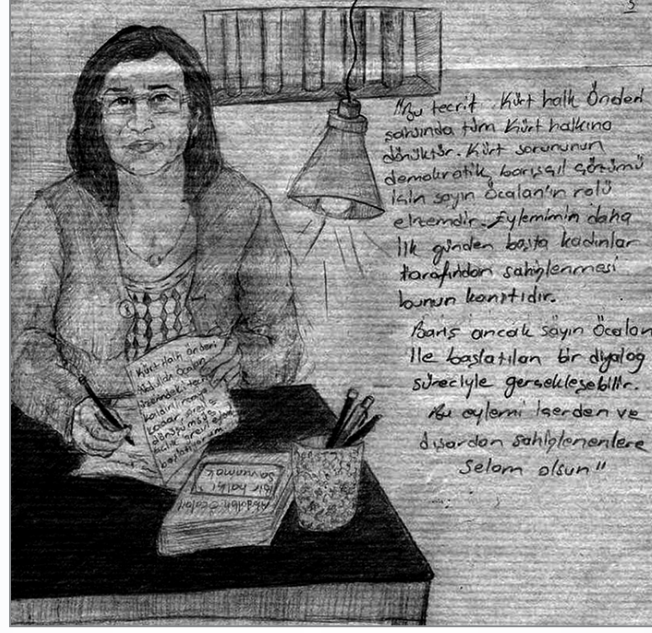 "Bu tecrit Kürt halk Önderi
şahsında tüm Kürt halkına
dönüktür. Kürt sorununun
demokratik, barışçıl çözümü
için sayın Öcalan'ın rolü
elzemdir. Eylemimin daha
ilk günden başta kadınlar
tarafından sahiplenmesi
bunun kanıtıdır.
Barış ancak sayın Öcalan
ile başlatılan bir diyalog
süreciyle gerçekleşebilir.
Bu eylemi içerden ve
dışardan sahiplenenlere
Selam olsun"
Kürt Halk Önderi
Abdullah Öcalan
üzerindeki
kadar
açlık grevi
başlatıyorum
Abdullah Öcalan
Bir halkı
savunmak